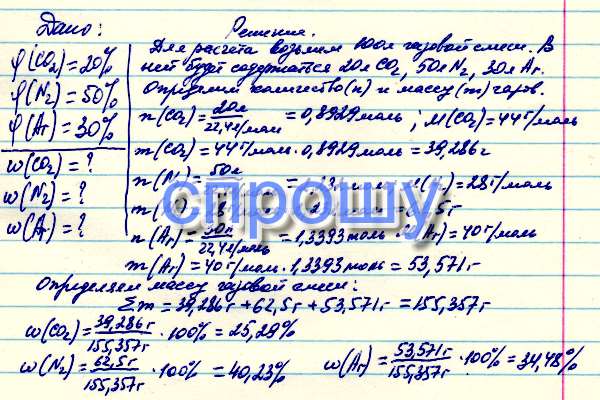 Дано:
φ(CO₂)=20%
φ(N₂)=50%
φ(Ar)=30%
ω(CO₂)=?
ω(N₂)=?
ω(Ar)=?
Решение.
Для расчета возьмем 100л газовой смеси. В
ней будет содержаться 20л CO₂, 50л N₂, 30л Ar.
Определим количество(n) и массу(m) газов.
n(CO₂)=20л/22,4л/моль=0,8929моль; M(CO₂)=44г/моль
m(CO₂)=44г/моль·0,8929моль=39,286г
n(N₂)=50л =28г/моль
m(
n(Ar)=30л/22,4л/моль=1,3393моль =40г/моль
m(Ar)=40г/моль·1,3393моль=53,571г
спрошу
Определяем массу газовой смеси:
Σm=39,286г+62,5г+53,571г=155,357г
ω(CO₂)=39,286г/155,357г·100%=25,29%
ω(N₂)=62,5г/155,357г·100%=40,23%
ω(Ar)=53,571г/155,357г·100%=34,48%